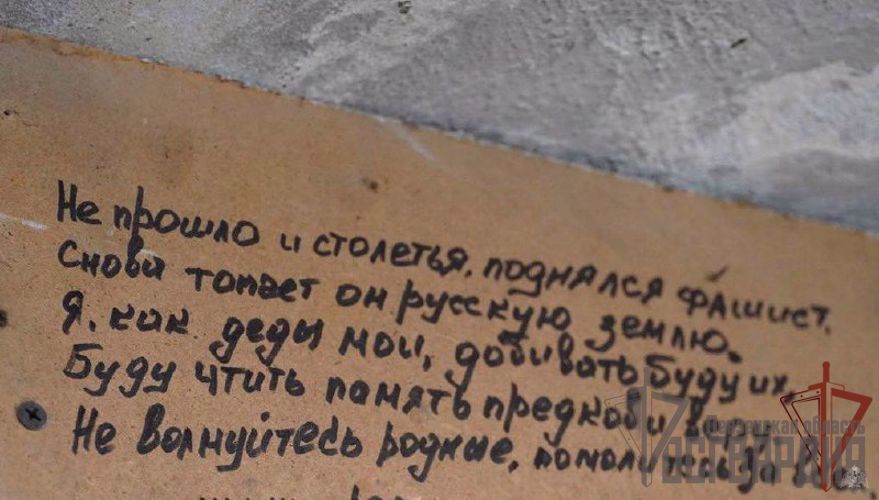 Не прошло и столетья, поднялся фашист,
Снова топает он русскую землю.
Я, как деды мои, добивать буду их,
Буду чтить память предков и
Не волнуйтесь родные, помолитесь за
Херсонская область
РОСГВАРДИЯ